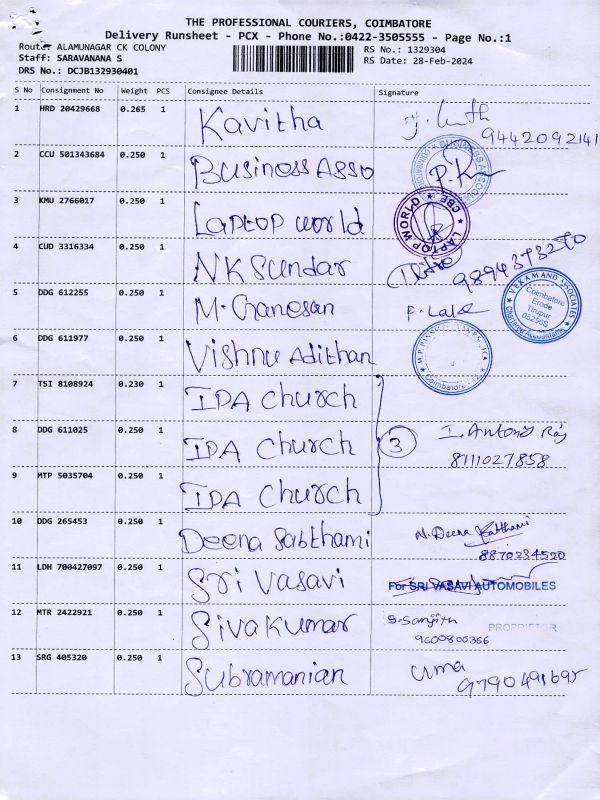 THE PROFESSIONAL COURIERS, COIMBATORE
Delivery Runsheet - PCX - Phone No.:0422-3505555 - Page No.:1
Route: ALAMUNAGAR CK COLONY
RS No.: 1329304
Staff: SARAVANANA S
RS Date: 28-Feb-2024
DRS No.: DCJB132930401
S No Consignment No Weight PCS Consignee Details Signature
1 HRD 20429668 0.265 1 Kavitha
9442092141
2 CCU 501343684 0.250 1 Business Asso
3 KMU 2766017 0.250 1 Laptop world
LAPTOP WORLD CBE
4 CUD 3316334 0.250 1 NK Sundar
9894373270
5 DDG 612255 0.250 1 M. Ganesan
VEKAM AND ASSOCIATES
Chartered Accountants
Coimbatore
Erode
Tirupur
6 DDG 611977 0.250 1 Vishnu Adithan
Coimbatore
7 TSI 8108924 0.230 1 IPA Church
8 DDG 611025 0.250 1 IPA Church 3 I. Antony Raj
8111027858
9 MTP 5035704 0.250 1 IPA Church
10 DDG 265453 0.250 1 Deena Sabthami N. Deena
8870234520
11 LDH 700427097 0.250 1 Sri Vasavi For SRI VASAVI AUTOMOBILES
12 MTR 2422921 0.250 1 Sivakumar S. Sanjith
PROPRIETOR
9600800366
13 SRG 405320 0.250 1 Subramanian Uma
9790491695